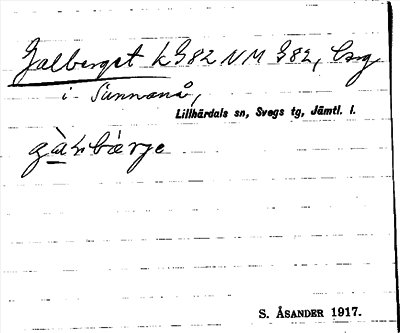 Galberget L G82 NM G82, bərg
i Sunnanå,
Lillhärdals sn, Svegs tg, Jämtl. l.
gàlbærje
S. ÅSANDER 1917.